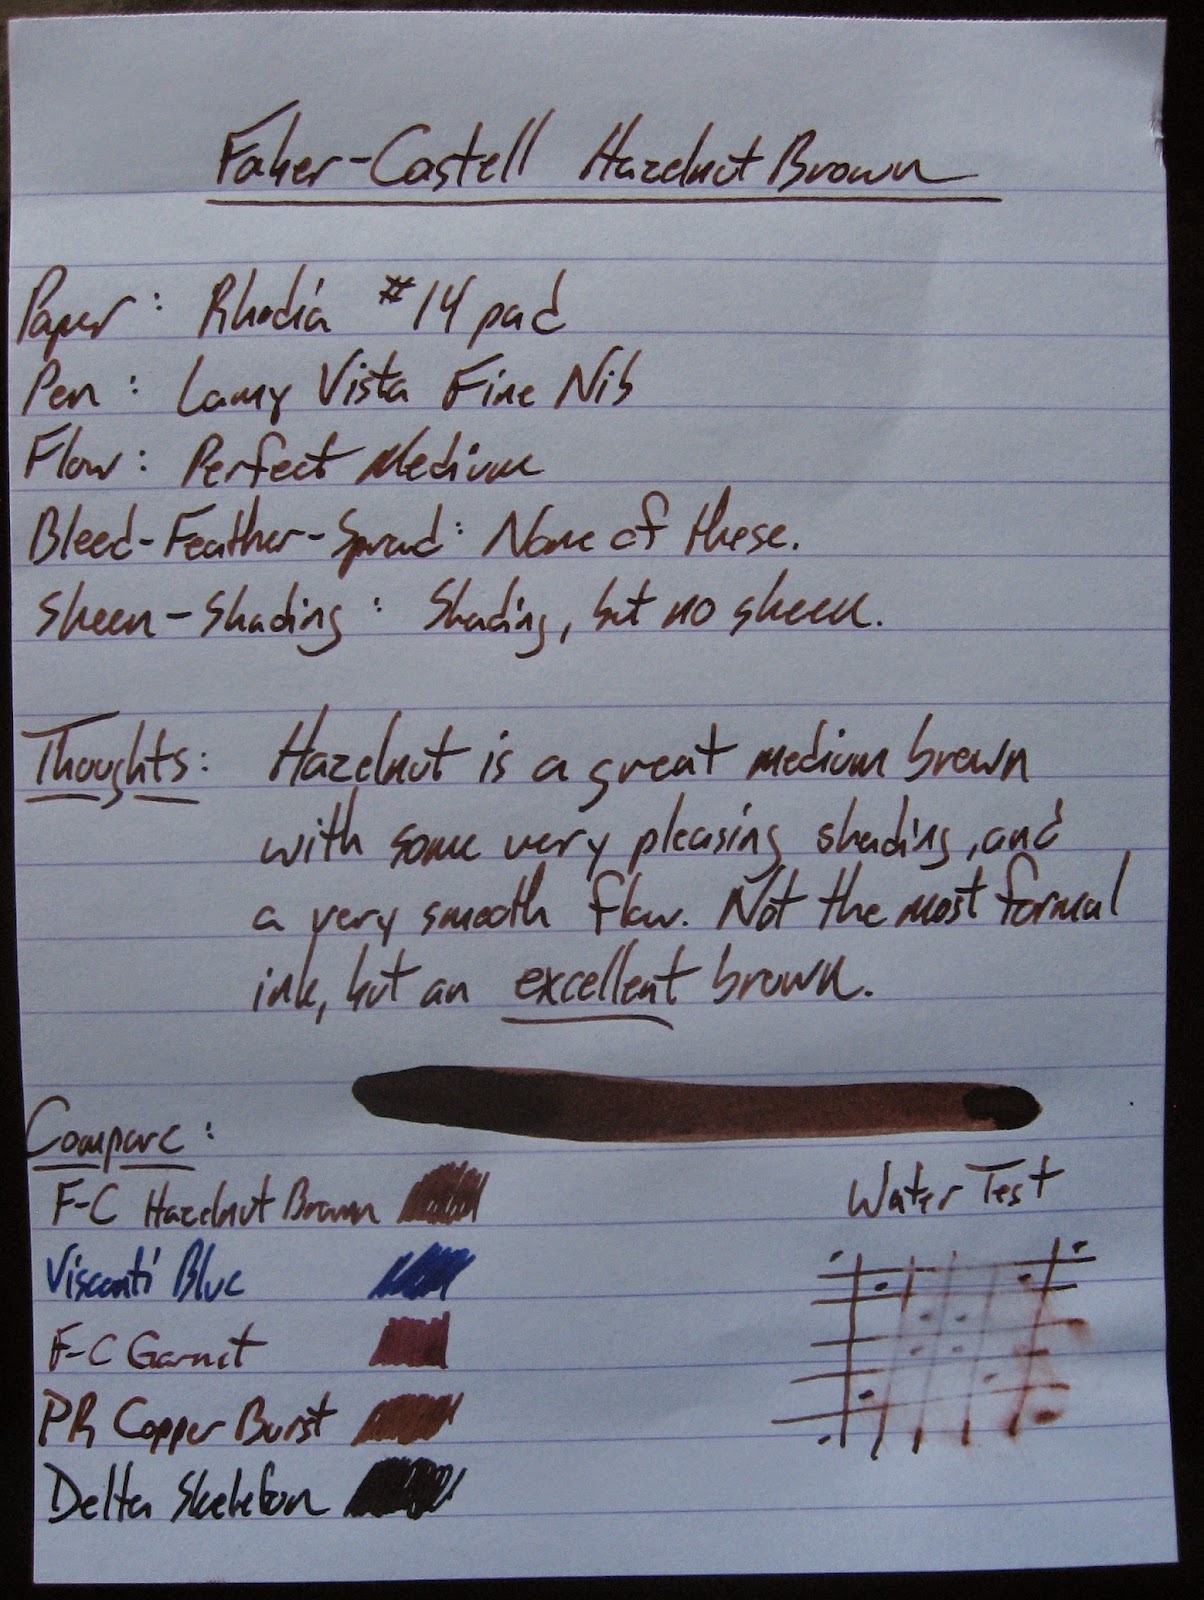 Faber-Castell Hazelnut Brown
Paper: Rhodia #14 pad
Pen: Lamy Vista Fine Nib
Flow: Perfect Medium
Bleed-Feather-Spread: None of these.
Sheen-Shading: Shading, but no sheen.
Thoughts: Hazelnut is a great medium brown
with some very pleasing shading, and
a very smooth flow. Not the most formal
ink, but an excellent brown.
Compare:
F-C Hazelnut Brown
Visconti Blue
F-C Garnet
PR Copper Burst
Delta Skeleton
Water Test